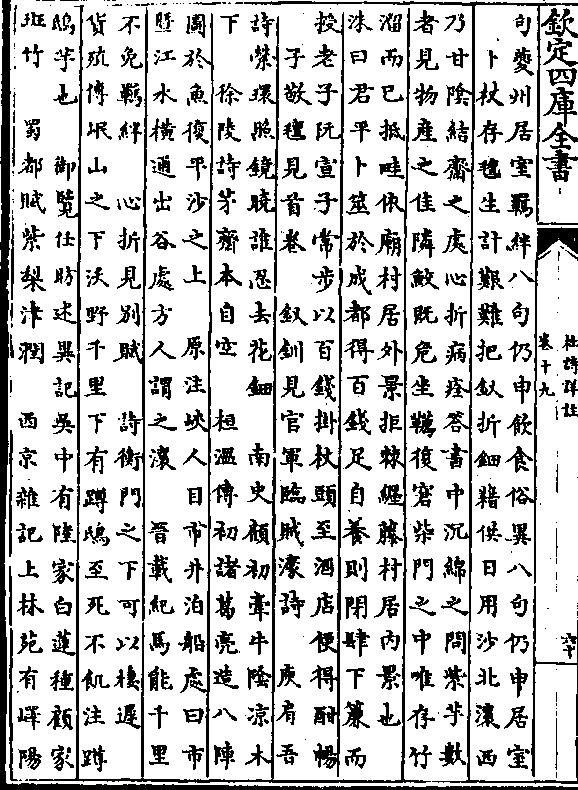 欽定四庫全書
杜詩詳註
卷十九
六十
句夔州居室羈絆八句仍申飲食俗異八句仍申居室
卜杖存氊生計艱難把釵折鈿籍供日用沙北瀼西
乃甘陰結齋之處心折病痊答書中沉綿之問紫芋數
者見物産之佳隣敵既危坐韉復窘柴門之中唯存竹
溜而已抵畦依廟村居外景拒棘纒藤村居内景也
洙曰君平卜筮於成都得百錢足自養則閉肆下簾而
授老子阮宣子常步以百錢掛杖頭至酒店便得酣暢
子敬氊見首卷 釵釧見官軍臨賊濠詩 庾肩吾
詩縈環照鏡曉誰忍去花鈿 南史顧初牽牛隂凉木
下 徐陵詩茅齋本自空 桓溫傳初諸葛亮造八陣
圖於魚復平沙之上 原注峽人目市井泊船處曰市
暨江水橫通出谷處方人謂之瀼 晉載紀馬能千里
不免羈絆 心折見別賦 詩衡門之下可以棲遲
貨殖傳岷山之下沃野千里下有蹲鴟至死不飢注蹲
鴟芋也 御覽任昉述異記吳中有陸家白蓮種顧家
班竹 蜀都賦紫梨津潤 西京雜記上林苑有嶧陽